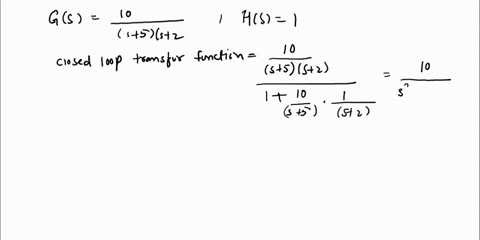 G(s) = 10 / (s+5)(s+2 , H(s) = 1
closed loop transfur function = 10 / (s+5)(s+2) / 1 + 10 / (s+5) · 1 / (s+2) = 10 / s²